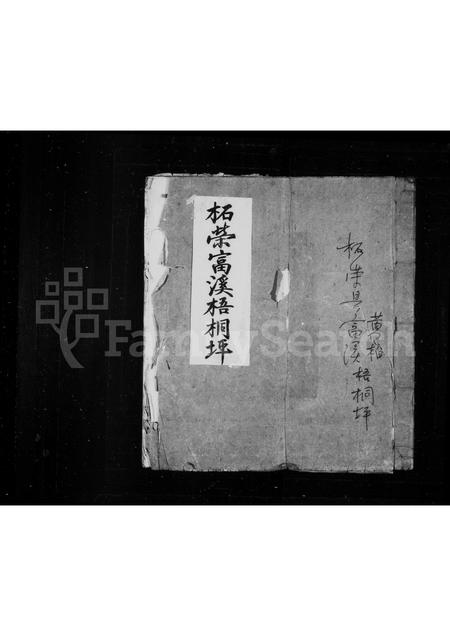 黄柏
柘荣县富溪梧桐坪
柘荣富溪梧桐坪
FamilySearch